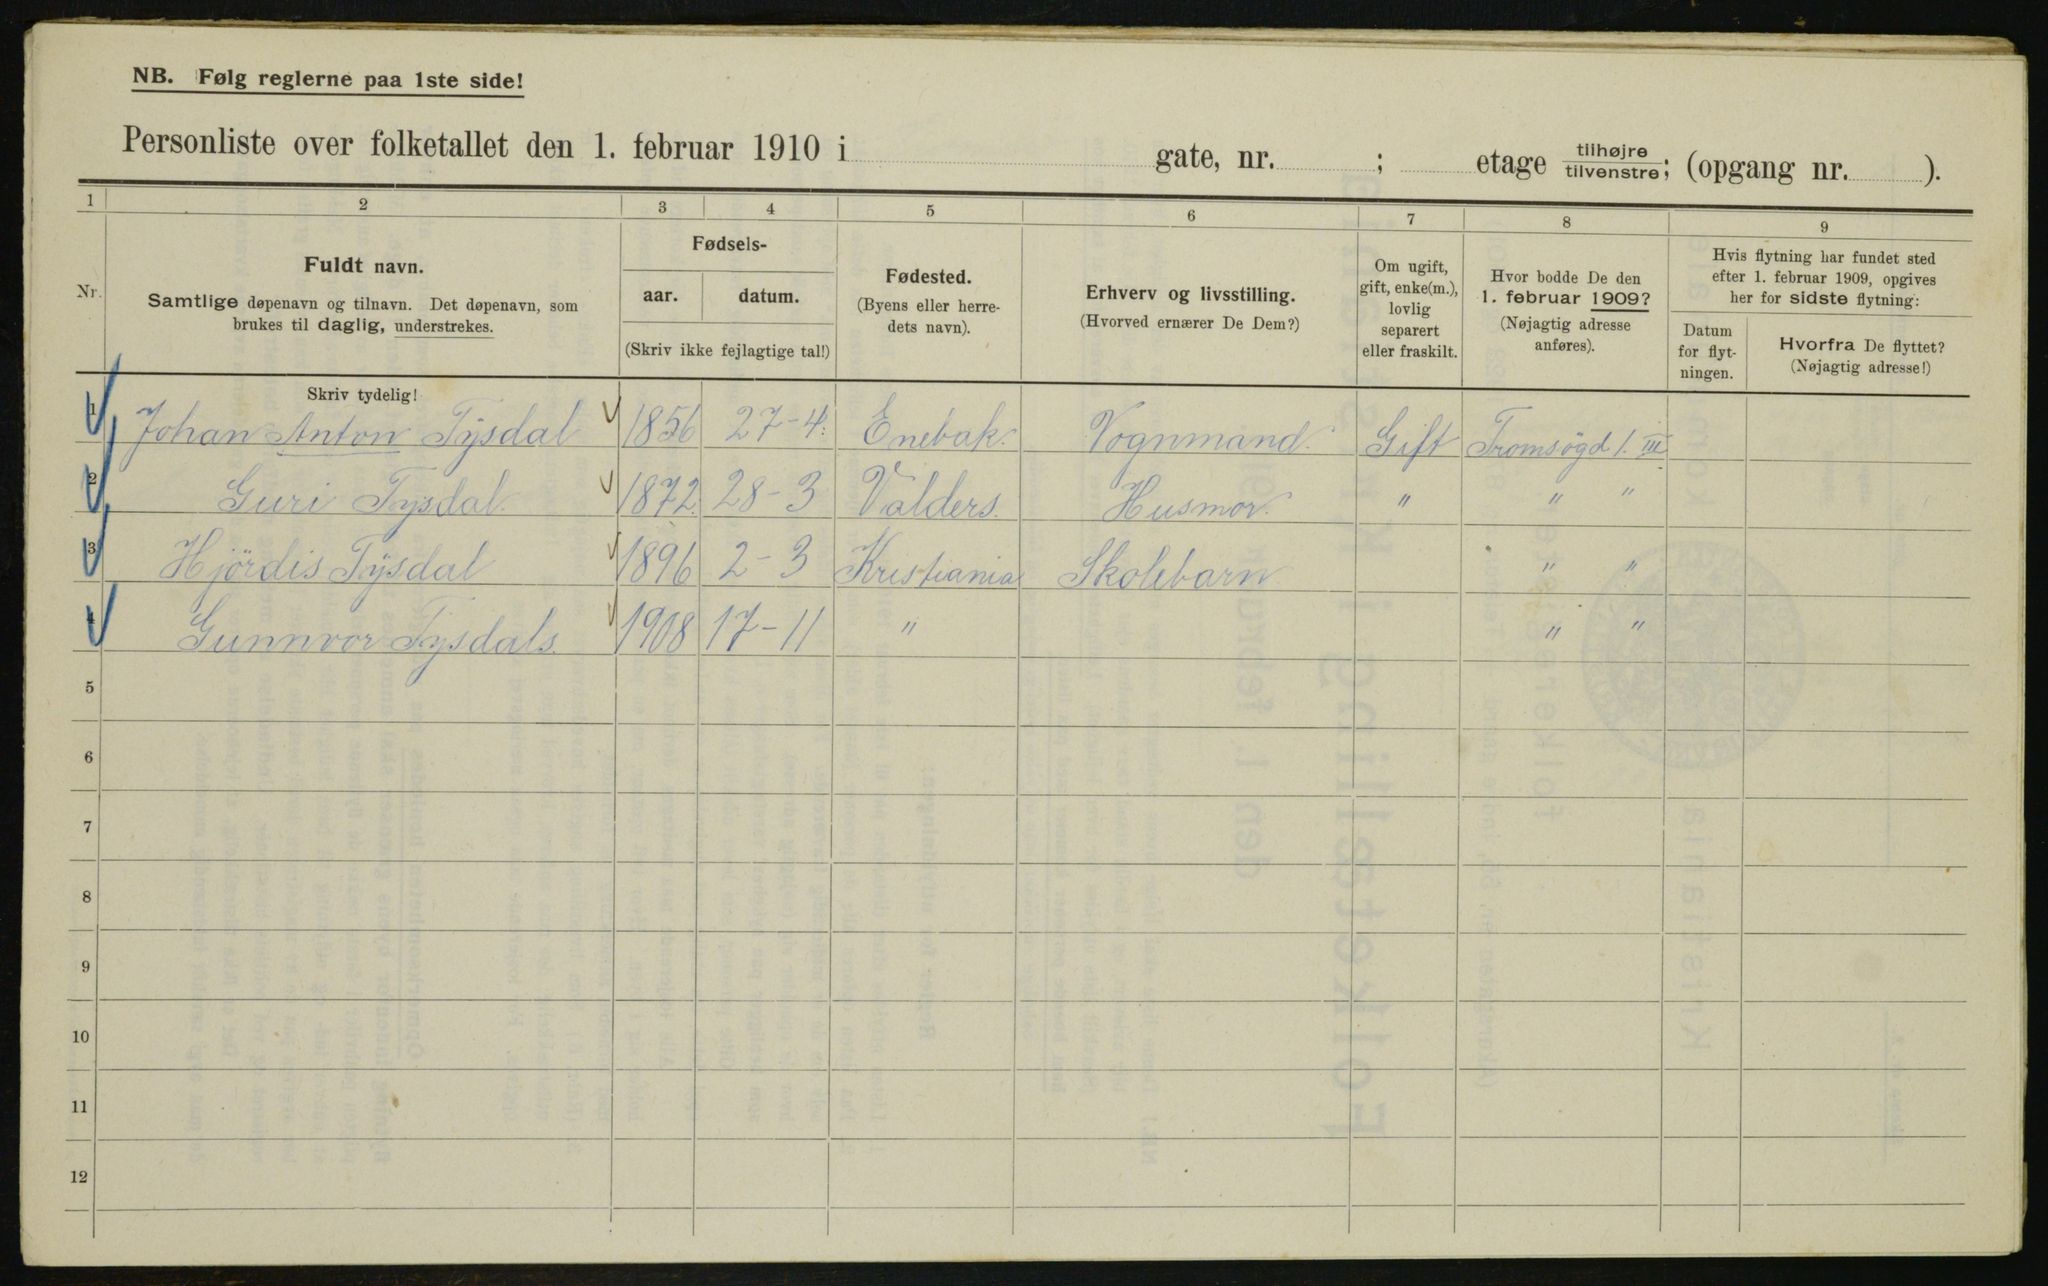 NB. Følg reglerne paa 1ste side!
Personliste over folketallet den 1. februar 1910 i gate, nr. ; etage tilhøjre/tilvenstre; (opgang nr. ).
1 2 3 4 5 6 7 8 9
Nr.
Fuldt navn.
Samtlige døpenavn og tilnavn. Det døpenavn, som
brukes til daglig, understrekes.
Skriv tydelig!
Fødsels-
aar. datum.
(Skriv ikke fejlagtige tal!)
Fødested.
(Byens eller herre-
dets navn).
Erhverv og livsstilling.
(Hvorved ernærer De Dem?)
Om ugift,
gift, enke(m.),
lovlig
separert
eller fraskilt.
Hvor bodde De den
1. februar 1909?
(Nøjagtig adresse
anføres).
Hvis flytning har fundet sted
efter 1. februar 1909, opgives
her for sidste flytning:
Datum
for flyt-
ningen.
Hvorfra De flyttet?
(Nøjagtig adresse!)
1 Johan Anton Tysdal 1856 27-4. Enebak. Vognmand. Gift Tromsögd 1. III
2 Guri Tysdal. 1872 28-3 Valders. Husmor. " " "
3 Hjördis Tysdal 1896 2-3 Kristiania Skolebarn " "
4 Gunnvor Tysdals. 1908 17-11 " " "
5
6
7
8
9
10
11
12